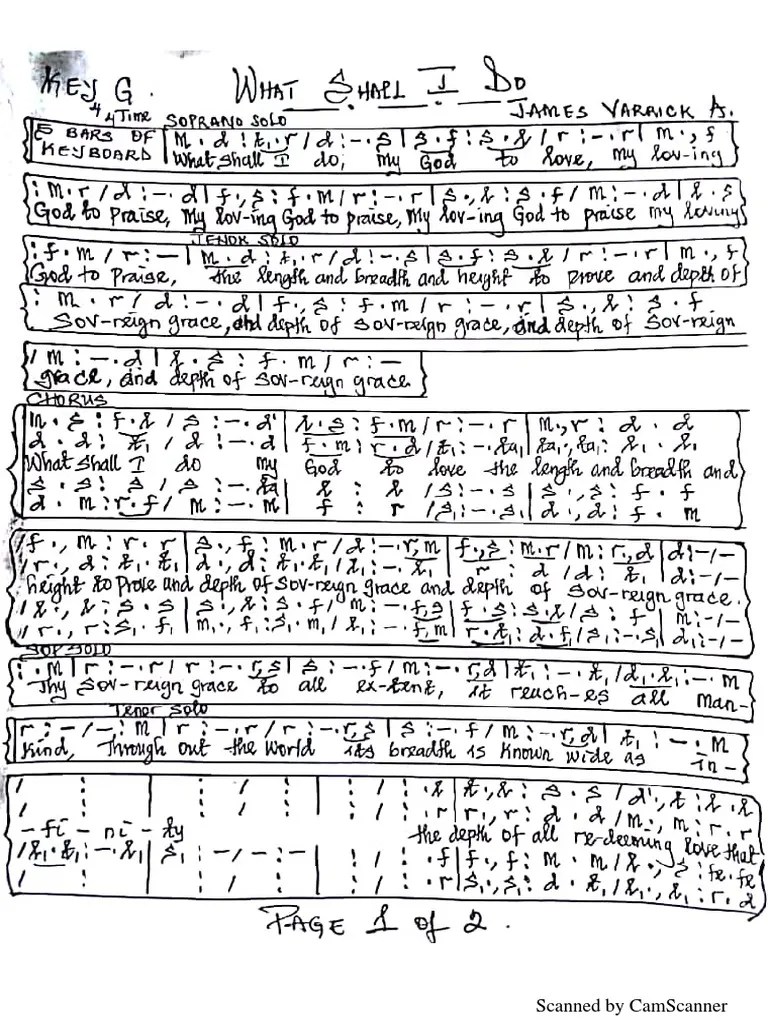 KEY G. WHAT SHALL I DO
4/4 Time SOPRANO SOLO JAMES VARRICK A.
5 BARS OF KEYBOARD | M . d : t₁ . r / d : - . s | s . f : s . l / r : - . r | m . , f
What shall I do, my God to love, my lov-ing
: M . r / d : - . d | f . , s : f . m / r : - . r | s . , l : s . f / M : - . d | l . s
God to praise, my lov-ing God to praise, my lov-ing God to praise my loving
: f . m / r : - | TENOR SOLO M . d : t₁ . r / d : - . s | s . f : s . l / r : - . r | m . , f
God to praise, the length and breadth and height to prove and depth of
: M . r / d : - . d | f . , s : f . m / r : - . r | s . , l : s . f
Sov-reign grace, and depth of sov-reign grace, and depth of sov-reign
/ M : - . d | l . s : f . m / r : -
grace, and depth of sov-reign grace
CHORUS
m . s : f . l / s : - . d' | l . s : f . m / r : - . r | m . , r : d . d
d . d : t₁ / d : - . d | f . m : r . d / t₁ : - . ta₁ | ta₁ . , ta₁ : l₁ . l₁
What shall I do my God to love the length and breadth and
s . s : s / s : - . ta | l : l / s : - . s | s . , s : f . f
d . m : r . f / m : - . m | f : r / s₁ : - . s₁ | d . , d : f . m
/ f . , m : r . r | s . , f : m . r / d : - . r , m | f . , s : m . r / m : r . , d | d : - / -
/ r . , d : t₁ . t₁ | d . , d : t₁ . t₁ / l₁ : - . l₁ | r : d / d : t₁ | d : - / -
height to prove and depth of sov-reign grace and depth of sov-reign grace.
/ l . , l : s . s | s . , l : s . f / m : - . f , s | f . s : s . l / s : f | M : - / -
/ r . , r : s₁ . f₁ | m₁ . , f₁ : s₁ . m₁ / l₁ : - . f , m | r . t₁ : d . f₁ / s₁ : - . s₁ | d₁ : - / -
SOP SOLO
: . M | r : - . r / r : - . r , s | s : - . f / m : - . r , d | t₁ : - . t₁ / d₁ . l₁ : - . M
Thy sov-reign grace to all ex-tent, it reach-es all man-
Tenor Solo
r : - / - : M | r : - . r / r : - . r , s | s : - . f / m : - . r , d | t₁ : - . M
kind, Through out the world its breadth is known wide as in-
/ : | : / : | : / : . l | t . , l : s . s / d' . , t : l . l
/ : | : / : | : / : . r | r . , r : d . d / m . , m : r . r
- fi - ni - ty the depth of all re-deeming love that
/ l₁ . t₁ : - . l₁ | s₁ : - / - : - | : / : . f | f . , f : m . m / l . , s : fe . fe
/ : | : / : | : / : . r | s₁ . , s₁ : d . t₁ / l₁ . , l₁ : r . d
PAGE 1 of 2.
Scanned by CamScanner